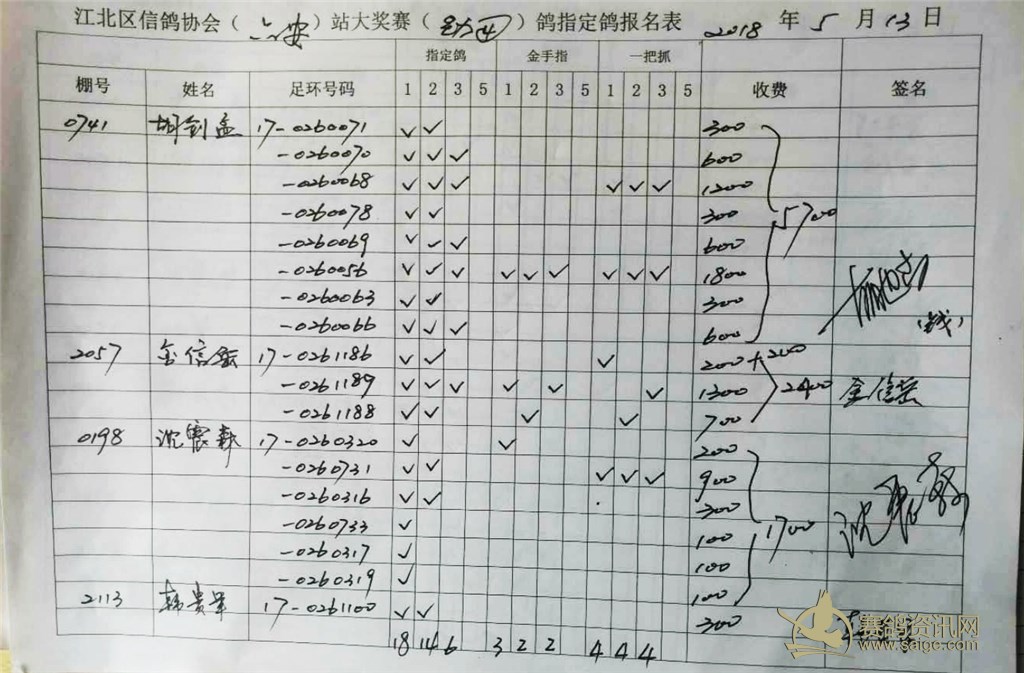 江北区信鸽协会（六安）站大奖赛（ ）鸽指定鸽报名表 2018年5月13日
指定鸽 金手指 一把抓
棚号 姓名 足环号码 1 2 3 5 1 2 3 5 1 2 3 5 收费 签名
0741 胡剑孟 17-0260071 ✓ ✓ 300
-0260070 ✓ ✓ ✓ 600
-0260068 ✓ ✓ ✓ ✓ ✓ ✓ 1200
-0260078 ✓ ✓ 300 5700
-0260069 ✓ ✓ ✓ 600
-0260056 ✓ ✓ ✓ ✓ ✓ ✓ ✓ ✓ ✓ 1800
-0260063 ✓ ✓ 300
-0260066 ✓ ✓ ✓ 600
2057 金信 17-0261186 ✓ ✓ ✓ 200+200
-0261189 ✓ ✓ ✓ ✓ ✓ ✓ 1300 2400 金信
-0261188 ✓ ✓ ✓ ✓ 700
0198 沈震 17-0260320 ✓ ✓ 200
-0260731 ✓ ✓ ✓ ✓ ✓ 900
-0260316 ✓ ✓ 300
-0260733 ✓ 100 1700 沈震
-0260317 ✓ 100
-0260319 ✓ 100
2113 韩贵 17-0261100 ✓ ✓ 300
18 14 6 3 2 2 4 4 4
赛鸽资讯网
www.saigc.com